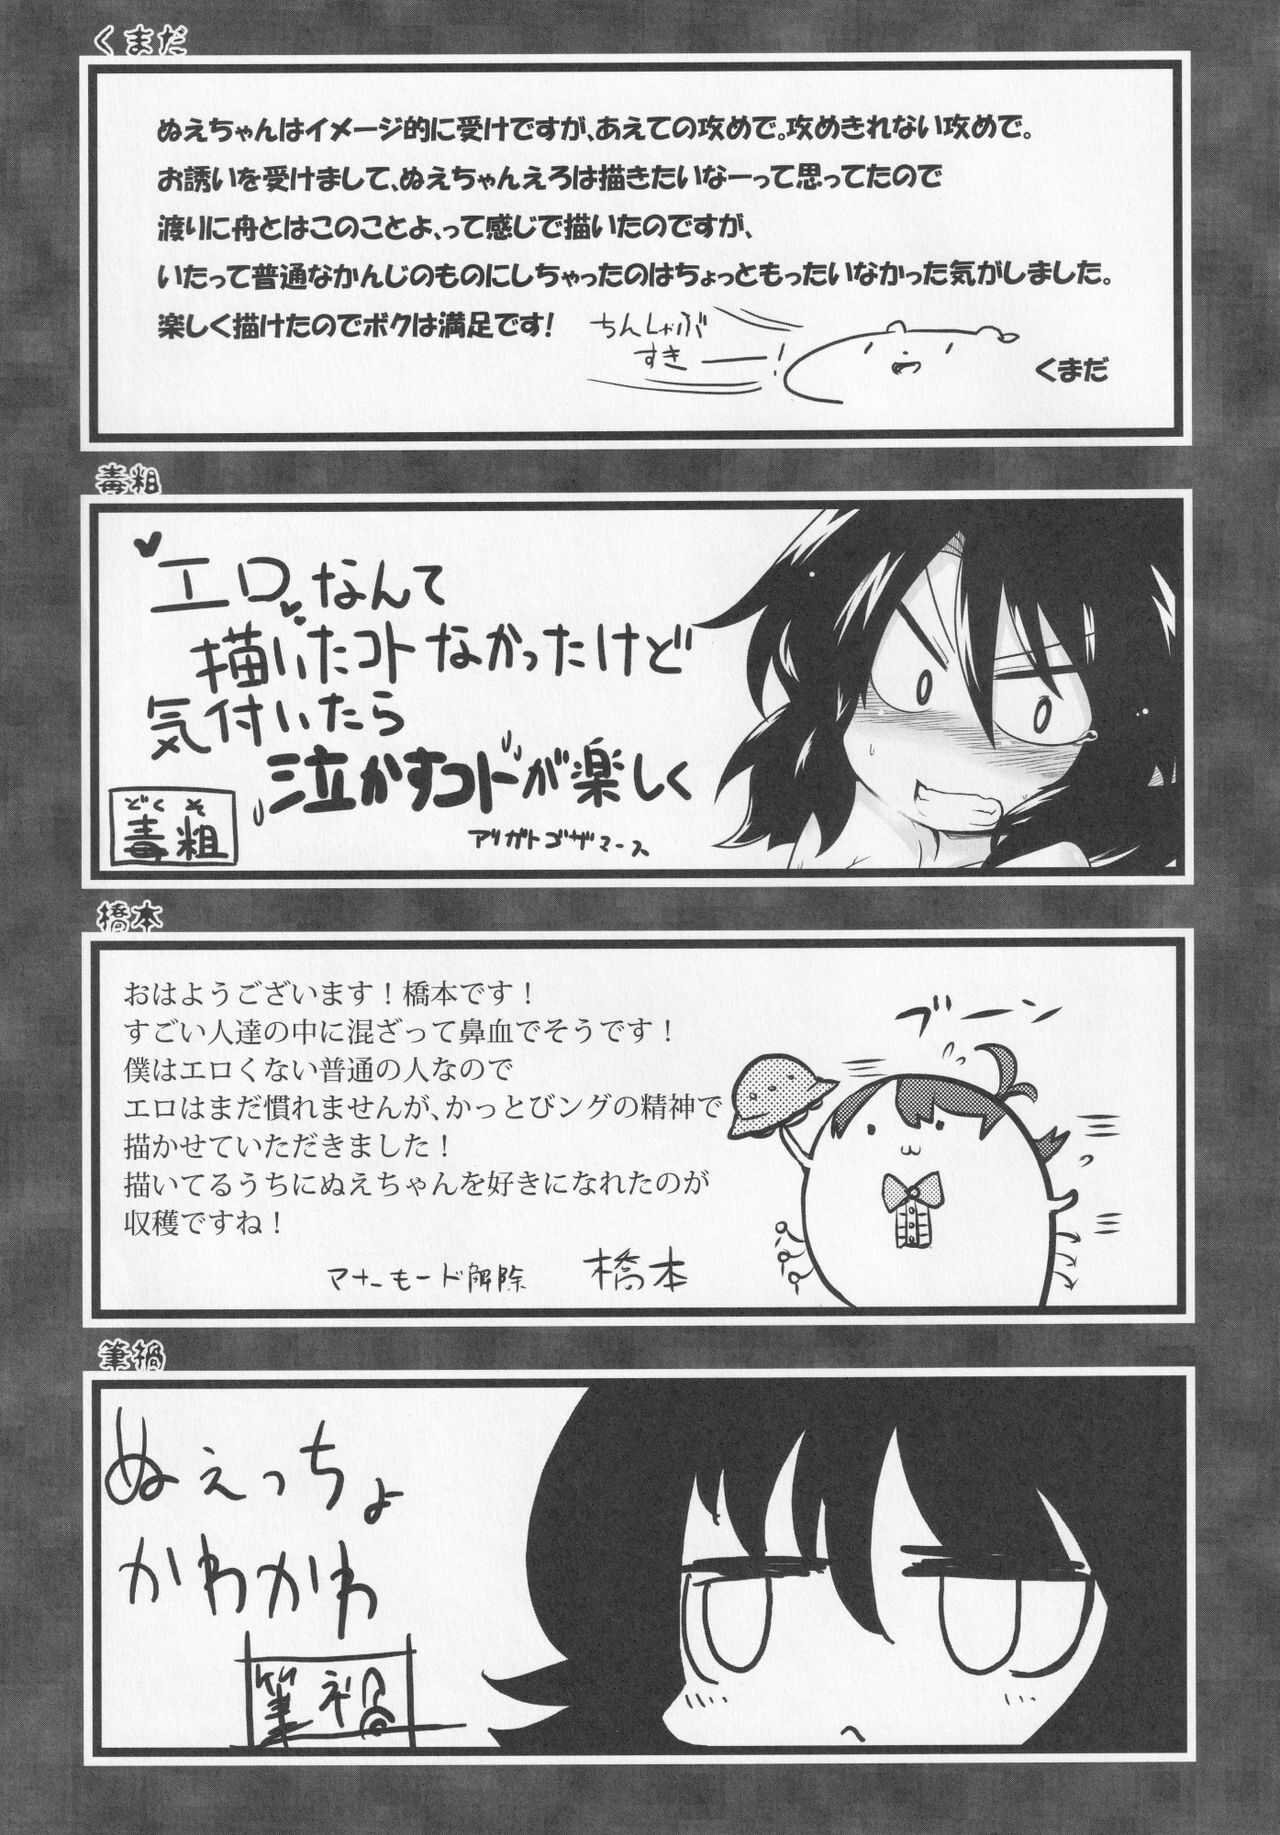 くまだ
ぬえちゃんはイメージ的に受けですが、あえての攻めで。攻めきれない攻めで。
お誘いを受けまして、ぬえちゃんえろは描きたいなーって思ってたので
渡りに舟とはこのことよ、って感じで描いたのですが、
いたって普通なかんじのものにしちゃったのはちょっともったいなかった気がしました。
楽しく描けたのでボクは満足です!
ちんしゃぶ
すきー!
くまだ
毒粗
エロなんて
描いたコトなかったけど
気付いたら
泣かすコトが楽しく
どくそ
毒粗
アリガトゴザマース
橋本
おはようございます！橋本です！
すごい人達の中に混ざって鼻血でそうです！
僕はエロくない普通の人なので
エロはまだ慣れませんが、かっとびングの精神で
描かせていただきました！
描いてるうちにぬえちゃんを好きになれたのが
収穫ですね！
マナーモード解除 橋本
ブーン
筆禍
ぬえっちょ
かわかわ
筆禍